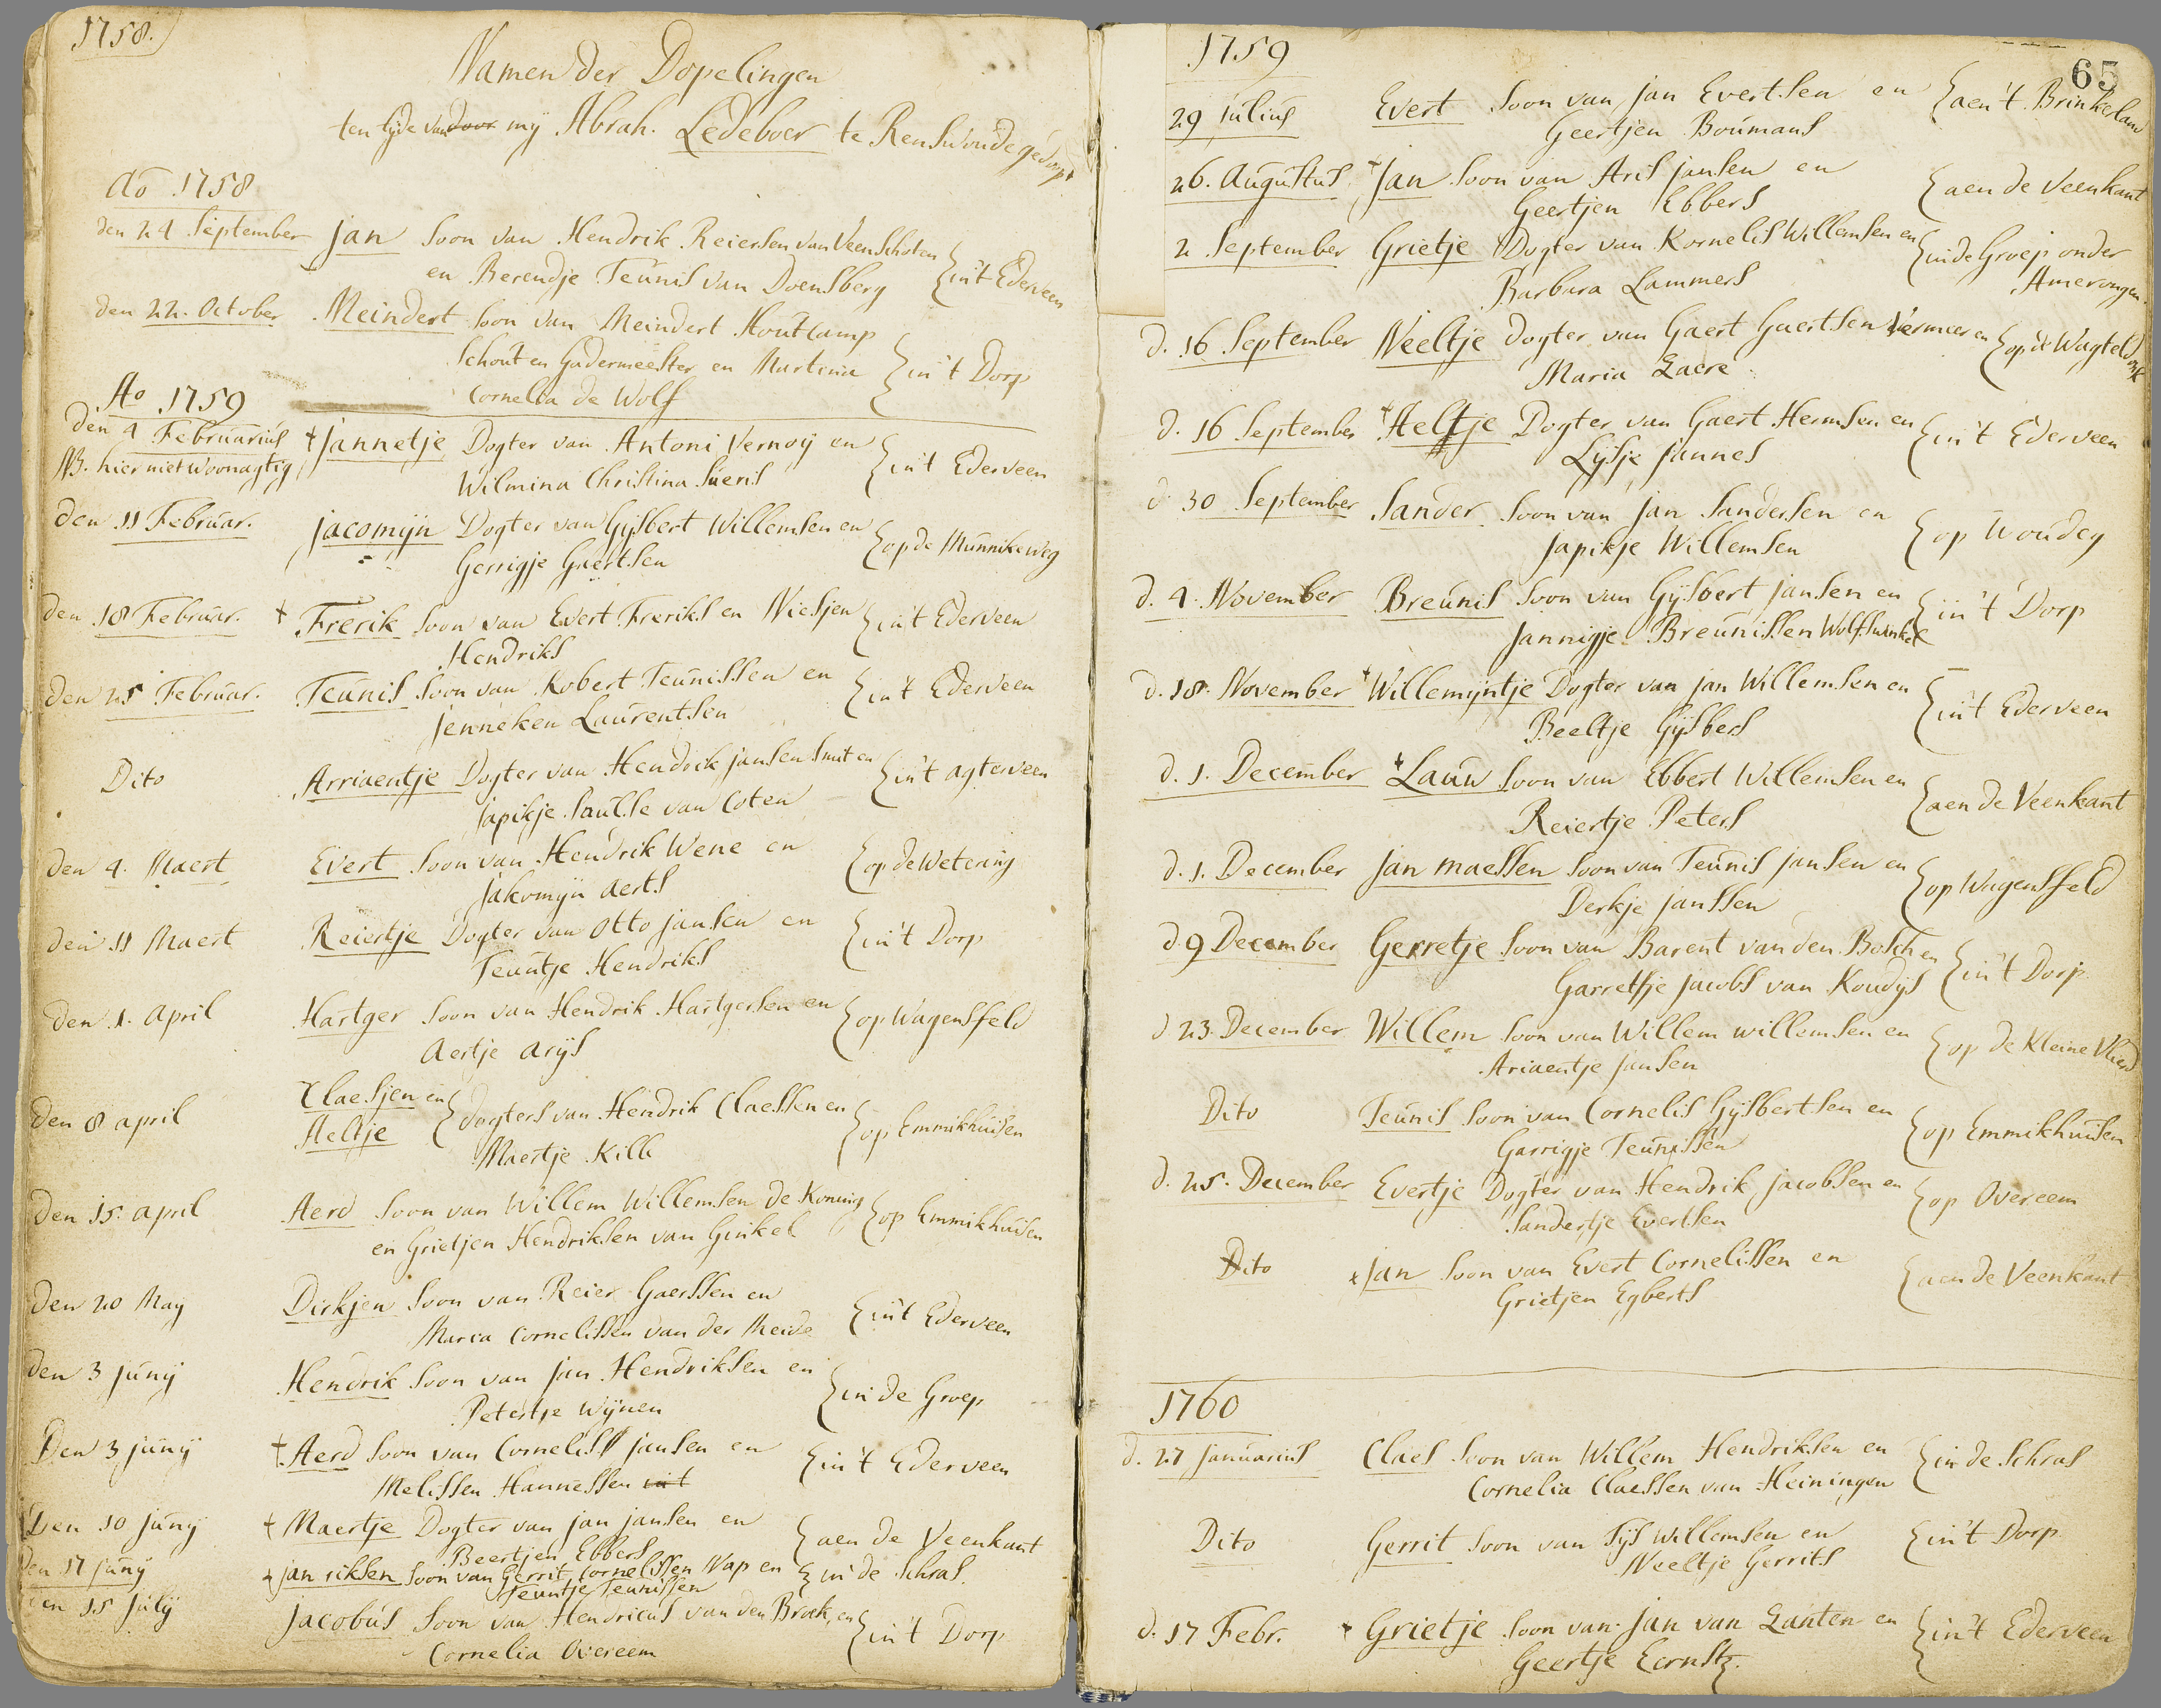 1758.
Namen der Dopelingen
ten tyde van door mÿ Abrah. Ledeboer te Renswoude gedoopt
Ao 1758
den 24 September Jan Soon van Hendrik Reiersen van Veenschoten {in't Ederveen
en Berendje Teunis van Doensberg
den 22. October Meindert Soon van Meindert Houtcamp
Schout en Gadermeester en Martina {in't Dorp
Cornelia de Wolf
Ao 1759
den 4 Februarius † Jannetje Dogter van Antoni Vernoÿ en {in't Ederveen
NB. hier niet woonagtig Wilmina Christina Sueris
den 11 Februar. Jacomijn Dogter van Gijsbert Willemsen en {op de Munnikeweg
Gerrigje Gaertsen
den 18 Februar. † Frerik Soon van Evert Freriks en Niesjen {in't Ederveen
Hendriks
den 25 Februar. Teunis Soon van Robert Teunissen en {in't Ederveen
Jenneken Laurentsen
Dito Arriaentje Dogter van Hendrik Jansen Smit en {in't agterveen
Japikje Paulse van Coten
den 4. Maert Evert Soon van Hendrik Wene en {op de Wetering
Jakomijn Aerts
den 11 Maert Reiertje Dogter van Otto Jansen en {in't Dorp
Teuntje Hendriks
den 1. April Hartger Soon van Hendrik Hartgersen en {op Wagensfeld
Aertje Arijs
den 8 april Claesjen en
Aeltje {Dogters van Hendrik Claessen en {op Emmikhuisen
Maertje Kill
den 15. april Aerd Soon van Willem Willemsen de Koning {op Emmikhuisen
en Grietjen Hendriksen van Ginkel
den 20 May Dirkjen Soon van Reier Gaerssen en {in't Ederveen
Maria Cornelissen van der Meide
den 3 junij Hendrik Soon van Jan Hendriksen en {in de Groep
Petertje Wijnen
Den 3 junij † Aerd Soon van Cornelis Jansen en {in't Ederveen
Melissen Hannessen uit
Den 10 junij † Maertje Dogter van Jan Jansen en {aen de Veenkant
Beertjen Ebbers
den 17 junij † Jan riksen Soon van Gerrit Cornelissen Nap en {in de Schras.
Teuntje Teunissen
den 15 julij Jacobus Soon van Hendricus van den Broek, en {in't Dorp
Cornelia Overeem
1759
65
29 Julius Evert Soon van Jan Evertsen en {aen't Brinkeland
Geertjen Boumans
26. Augustus † Jan Soon van Aris Jansen en {aen de Veenkant
Geertjen Ebbers
2 September Grietje Dogter van Kornelis Willemsen en {in de Groep onder
Barbara Lammers Amerongen.
d. 16 September Neeltje Dogter van Gaert Gaertsen Vermeer en {op de Wagteldonk
Maria Lacre
d. 16 September † Aeltje Dogter van Gaert Hermsen en {in't Ederveen
Lijsje Jannes
d. 30 September Sander Soon van Jan Sandersen en {op Woudeg
Japikje Willemsen
d. 4. November Breunis Soon van Gijsbert Jansen en {in't Dorp
Jannigje Breunissen Wolfswinkel
d. 18. November † Willemijntje Dogter van Jan Willemsen en {in't Ederveen
Beeltje Gijsbers
d. 1. December † Lauw Soon van Ebbert Willemsen en {aen de Veenkant
Reiertje Peters
d. 1. December Jan Maessen Soon van Teunis Jansen en {op Wagensfeld
Derkje Janssen
d. 9 December Gerretje Soon van Barent van den Bosch en {in't Dorp.
Garretsje Jacobs van Koudijs
d 23. December Willem Soon van Willem Willemsen en {op de Kleine Vliert
Ariaentje Jansen
Dito Teunis Soon van Cornelis Gijsbertsen en {op Emmikhuisen
Garrigje Teunissen
d. 25. December Evertje Dogter van Hendrik Jacobsen en {op Overeem
Sandertje Evertsen
Dito † Jan Soon van Evert Cornelissen en {aen de Veenkant
Grietjen Egberts
1760
d. 27 Januarius Claes Soon van Willem Hendriksen en {in de Schras
Cornelia Claessen van Heiningen
Dito Gerrit Soon van Tijs Willemsen en {in't Dorp.
Neeltje Gerrits
d. 17 Febr. † Grietje Soon van Jan van Lanten en {in't Ederveen
Geertje Eernstz.